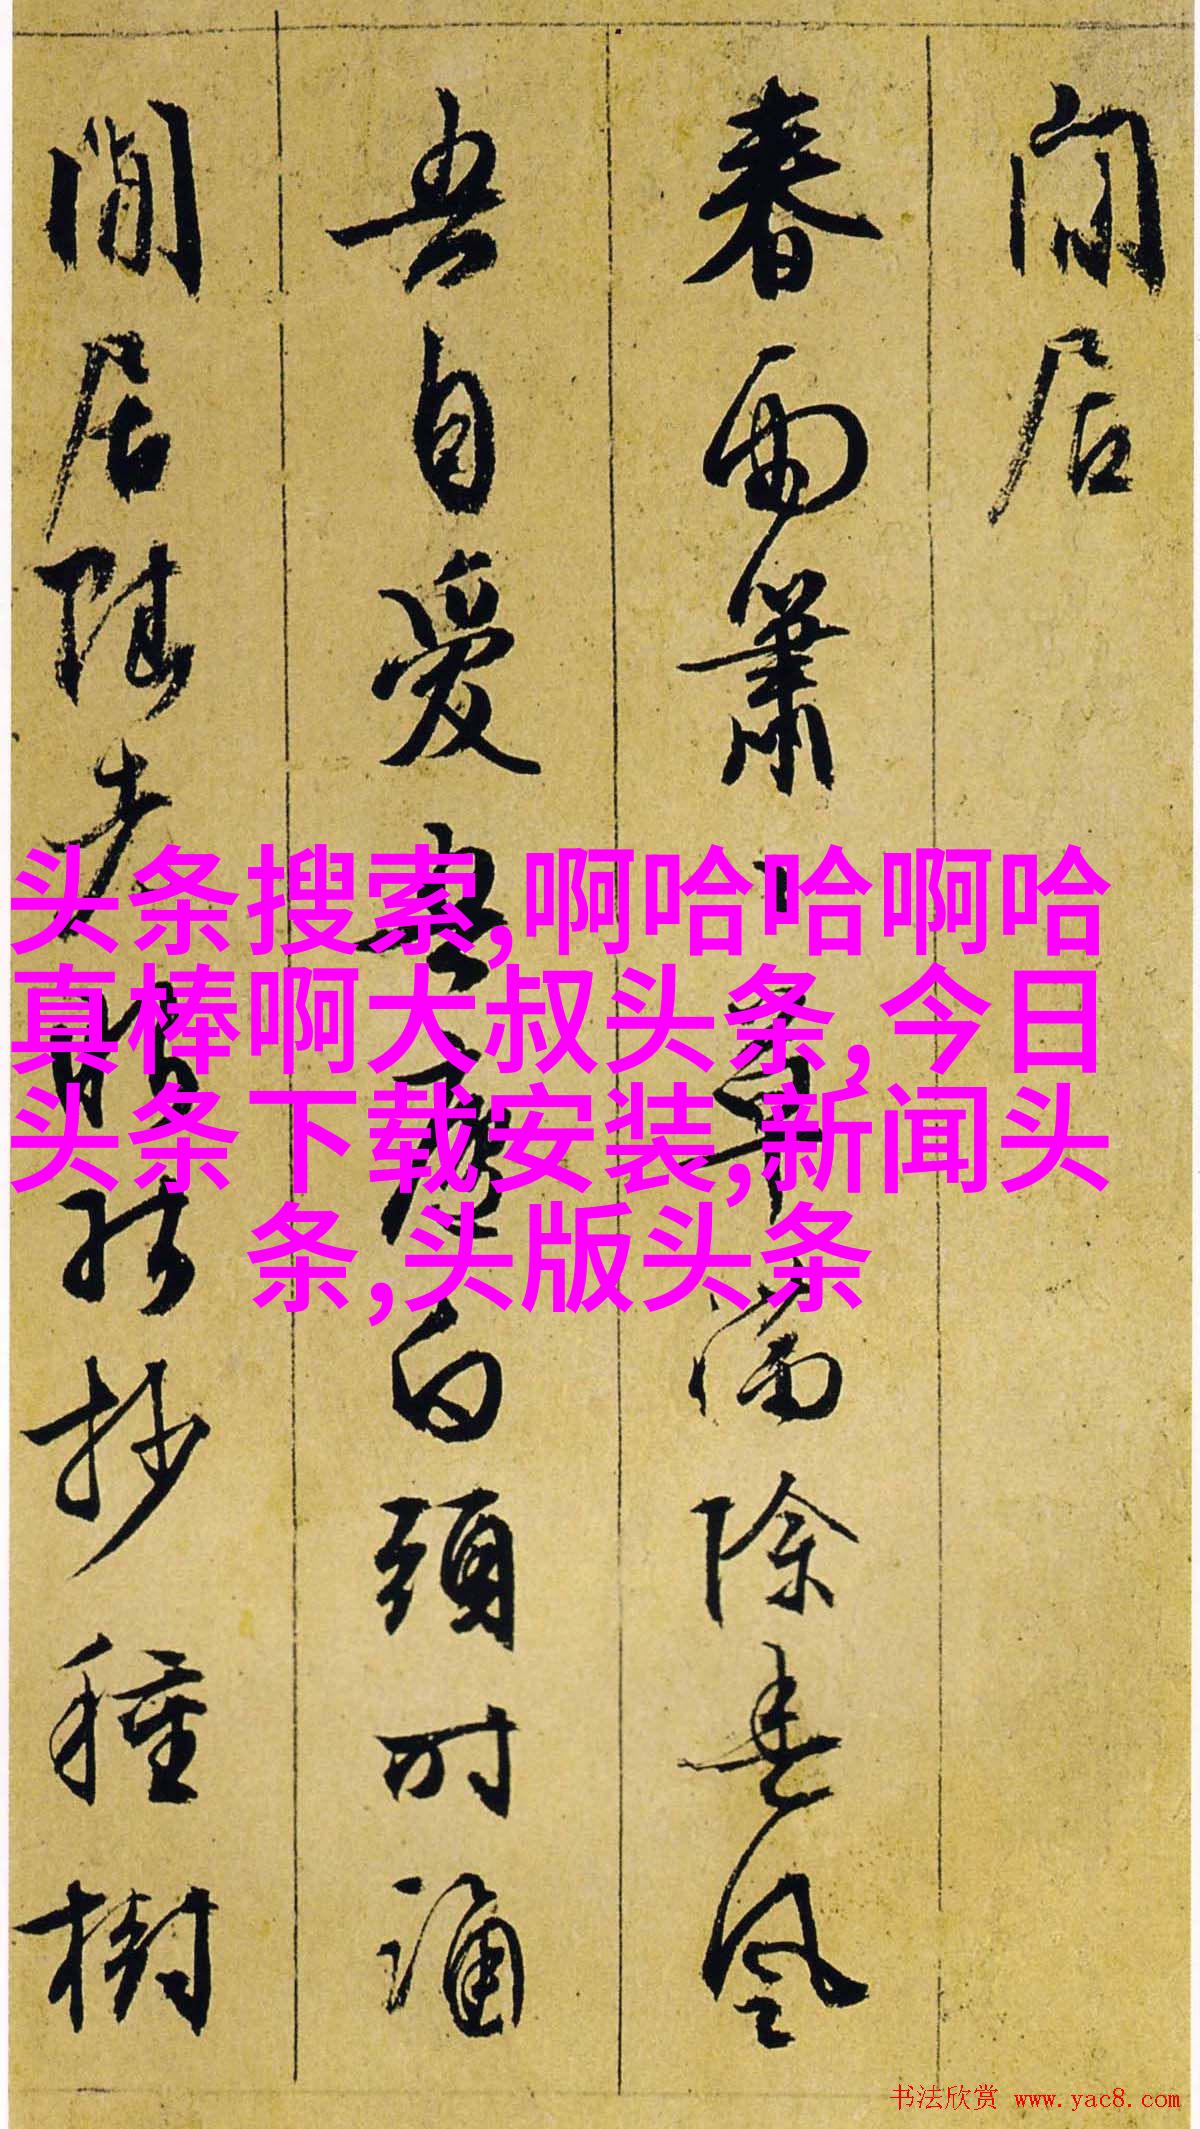 閒居
春雨蕭〻草滿除春風
吾自愛吾廬白頭時誦
閒居賦老眼能抄種樹
头条搜索,啊哈哈啊哈
真棒啊大叔头条,今日
头条下载安装,新闻头
条,头版头条
书法欣赏 www.yac8.com